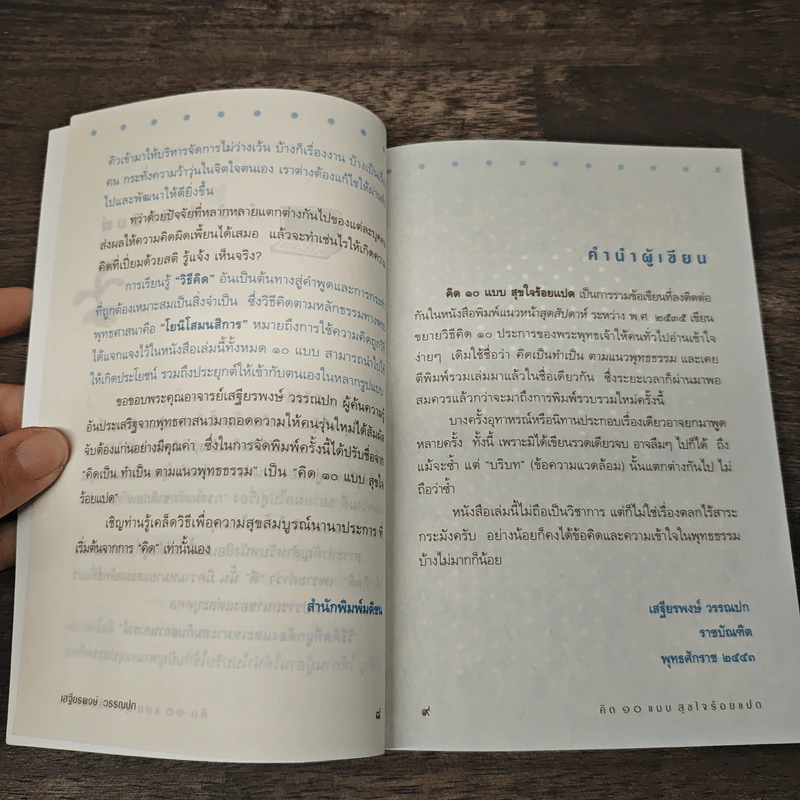 คิวเข้ามาให้บริหารจัดการไม่ว่างเว้น บ้างก็เรื่องงาน บ้างเป็น
คน กระทั่งความว้าวุ่นในจิตใจตนเอง เราต่างต้องแก้ไขให้ผ่าน
ไปและพัฒนาให้ดียิ่งขึ้น
ทว่าด้วยปัจจัยที่หลากหลายแตกต่างกันไปของแต่ละบุคคล
ส่งผลให้ความคิดผิดเพี้ยนได้เสมอ แล้วจะทำเช่นไรให้เกิดความ
คิดที่เปี่ยมด้วยสติ รู้แจ้ง เห็นจริง?
การเรียนรู้ “วิธีคิด” อันเป็นต้นทางสู่คำพูดและการกระทำ
ที่ถูกต้องเหมาะสมเป็นสิ่งจำเป็น ซึ่งวิธีคิดตามหลักธรรมทาง
พุทธศาสนาคือ “โยนิโสมนสิการ” หมายถึงการใช้ความคิดถูกวิธี
ได้แจกแจงไว้ในหนังสือเล่มนี้ทั้งหมด ๑๐ แบบ สามารถนำไปใช้
ให้เกิดประโยชน์ รวมถึงประยุกต์ให้เข้ากับตนเองในหลากรูปแบบ
ขอขอบพระคุณอาจารย์เสฐียรพงษ์ วรรณปก ผู้ค้นความรู้
อันประเสริฐจากพุทธศาสนามาถอดความให้คนรุ่นใหม่ได้สัมผัส
จับต้องแก่นอย่างมีคุณค่า ซึ่งในการจัดพิมพ์ครั้งนี้ได้ปรับชื่อจาก
“คิดเป็น ทำเป็น ตามแนวพุทธธรรม” เป็น “คิด ๑๐ แบบ สุขใจ
ร้อยแปด”
เชิญท่านรู้เคล็ดวิธีเพื่อความสุขสมบูรณ์นานาประการ ที่
เริ่มต้นจากการ “คิด” เท่านั้นเอง
สำนักพิมพ์มติชน
เสฐียรพงษ์ วรรณปก
๘
คำนำผู้เขียน
คิด ๑๐ แบบ สุขใจร้อยแปด เป็นการรวมข้อเขียนที่ลงติดต่อ
กันในหนังสือพิมพ์แนวหน้าสุดสัปดาห์ ระหว่าง พ.ศ. ๒๕๓๕ เขียน
ขยายวิธีคิด ๑๐ ประการของพระพุทธเจ้าให้คนทั่วไปอ่านเข้าใจ
ง่ายๆ เดิมใช้ชื่อว่า คิดเป็นทำเป็น ตามแนวพุทธธรรม และเคย
ตีพิมพ์รวมเล่มมาแล้วในชื่อเดียวกัน ซึ่งระยะเวลาก็ผ่านมาพอ
สมควรแล้วกว่าจะมาถึงการพิมพ์รวบรวมใหม่ครั้งนี้
บางครั้งอุทาหรณ์หรือนิทานประกอบเรื่องเดียวอาจยกมาพูด
หลายครั้ง ทั้งนี้ เพราะมิได้เขียนรวดเดียวจบ อาจลืมๆ ไปก็ได้ ถึง
แม้จะซ้ำ แต่ “บริบท” (ข้อความแวดล้อม) นั้นแตกต่างกันไป ไม่
ถือว่าซ้ำ
หนังสือเล่มนี้ไม่ถือเป็นวิชาการ แต่ก็ไม่ใช่เรื่องตลกไร้สาระ
กระมังครับ อย่างน้อยก็คงได้ข้อคิดและความเข้าใจในพุทธธรรม
บ้างไม่มากก็น้อย
เสฐียรพงษ์ วรรณปก
ราชบัณฑิต
พุทธศักราช ๒๕๕๓
๙
คิด ๑๐ แบบ สุขใจร้อยแปด